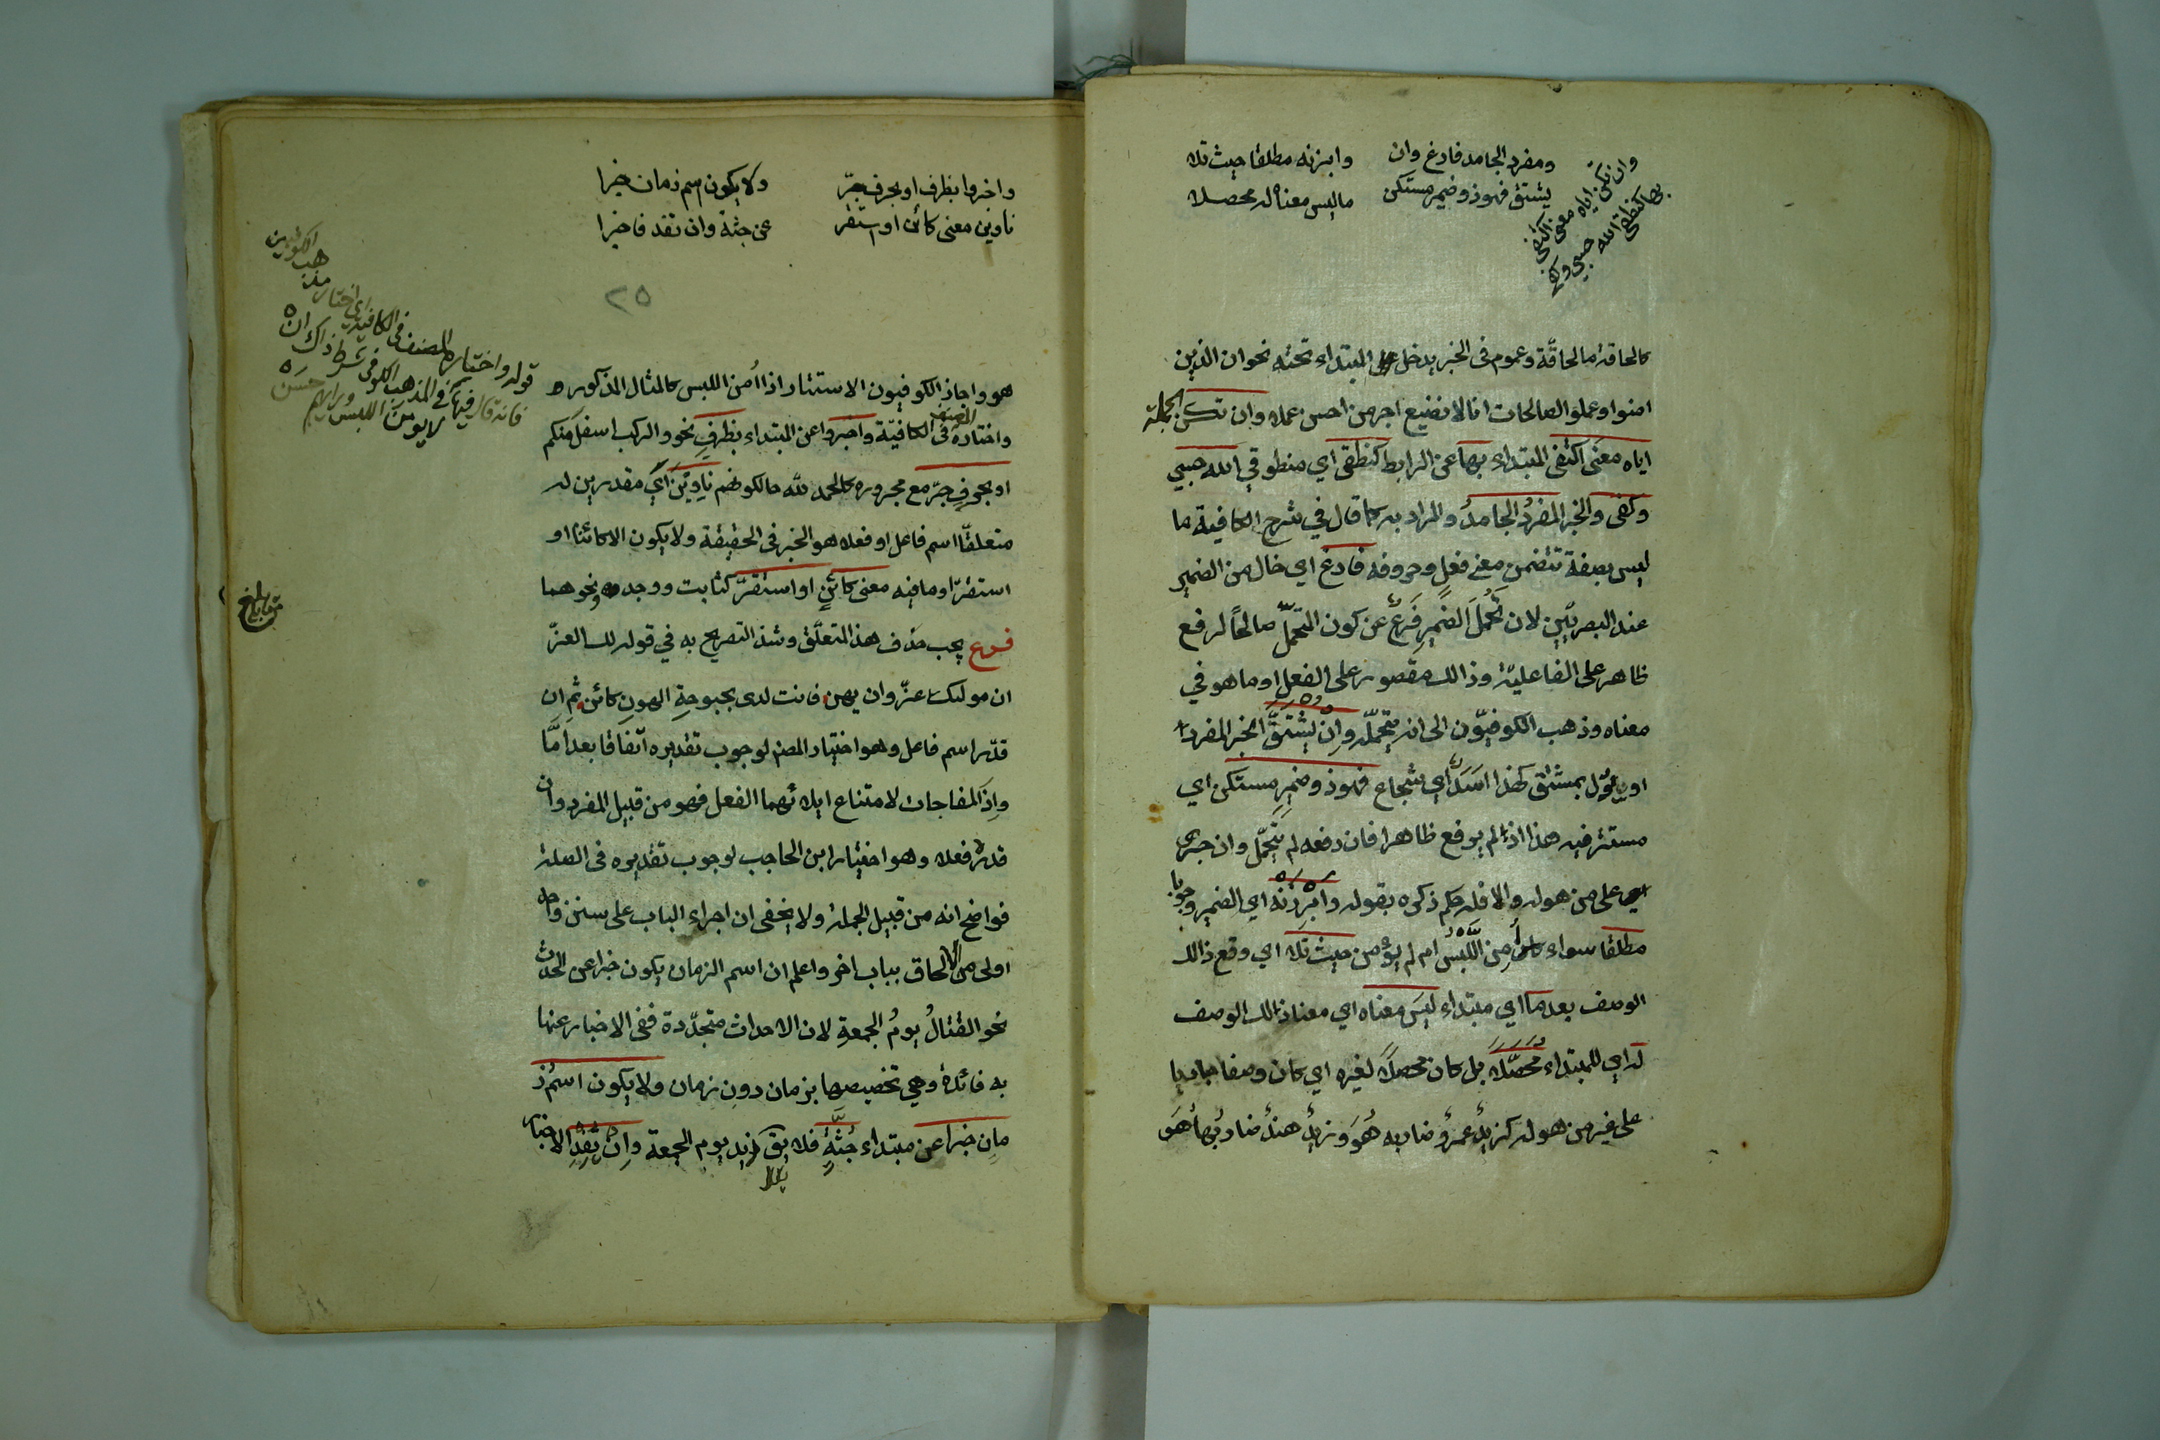 وان تكن اياه معنى اكتفى
بها كنطقى الله حسبي وكفى
ومفرد الجامد فارغ وان
يشتق فهو ذو ضمير مستكن
وابرزنه مطلقا حيث تلا
ما ليس معناه له محصلا
كالحاقة ما لحاقّة وعموم فى الخبر يدخل المبتداء تحته نحو ان الذين
امنوا وعملو الصالحات انا لا نضيع اجر من احسن عملا وان تكن الجملة
اياه معنى اكتفى المبتداء بها عن الرابط كنطقى اي منطوقي الله حسبي
وكفى والخبر المفردُ الجامدُ والمراد به كما قال في شرح الكافية ما
ليس بصفة تتضمن معنى فعل وحروفه فارغ اي خال من الضمير
عند البصريّين لان تحمّلَ الضميرِ فَرعٌ عن كون التحمّل صالحًا لرفع
ظاهر على الفاعلية وذالك مقصور على الفعل او ما هو في
معناه وذهب الكوفيّون الى انه يتحملّه وان يُشتقَّ الخبر المفرد
او يؤل بمشتق كهذا اسَدٌ اي شجاع فهو ذو ضميرٍ مستكن اي
مستتر فيه هذا اذا لم يرفع ظاهرا فان رفعه لم يتحمّل وان جرى
على من هو له والا فله حكم ذكره بقوله وابْرِزَنْهُ اي الضمير وجوبا
مطلقا سواء أُمِن اللَّبْسُ ام لم يؤمن حيث تلا اي وقع ذالك
الوصف بعد ما اي مبتداء ليسَ معناه اي معنا ذالك الوصف
له اي للمبتداء محصّلا بل كان محصلاً لغيره اي كان وصفا جاريا
على غير من هو له كزيدٌ عمرٌو ضاربه هُوَ وزيدٌ هندٌ ضاربُها هُوَ
واخبروا بظرف او بحرف جرّ
ناوين معنى كائن او استقر
ولا يكون اسم زمان خبرا
عن جثة وان تفد فاخبرا
٢٥
هو واجاز الكوفيون الاستتار اذا أُمن اللبس كالمثال المذكور
واختاره المصنف فى الكافيّة واخبروا عن المبتداء بظرفٍ نحو والركب اسفل منكم
او بحرفِ جرّ مع مجروره كالحمد للّه حالكونهم ناوِيْنَ اي مقدرين له
متعلقّا اسم فاعل او فعلا هو الخبر فى الحقيقة ولا يكون الا كائنا او
استقرّ او ما فيه معنى كائنٍ او استقرّ كثابت ووجد ونحوهما
فرع يجب حذف هذا المتعلّق وشذ التصريح به في قوله لك العزّ
ان مولاك عزّ وان يهن فانت لدى بحبوحةِ الهونِ كائن ثم ان
قدّر اسم فاعل وهو اختيار المصن لوجوب تقديره اتفاقا بعد امَّا
واذ المفاجات لامتناع ايلائهما الفعل فهو من قبيل المفرد وان
قدر فعلا وهو اختيار ابن الحاجب لوجوب تقديره فى الصلة
فواضح انه من قبيل الجملة ولا يخفى ان اجراء الباب على سنن واحد
اولى من الالحاق بباب اخر واعلم ان اسم الزمان يكون خبرا عن الحدث
نحو القتالُ يومُ الجمعةِ لان الاحداث متجدّدة ففى الاخبار عنها
به فائدة وهي تخصيصها بزمان دون زمان ولا يكون اسمُ ز
مانٍ خبرا عن مبتداء جُثّةٍ فلا يق زيد يوم الجمعة وان تُفِدِ الاخبار
قوله واختاره المصنف فى الكافية اي اختار مذهب الكوفيين
فانه قال فيها وفى المذهب الكوفى شرط ذاك ان
لا يؤمن اللبس ورايهم حسن